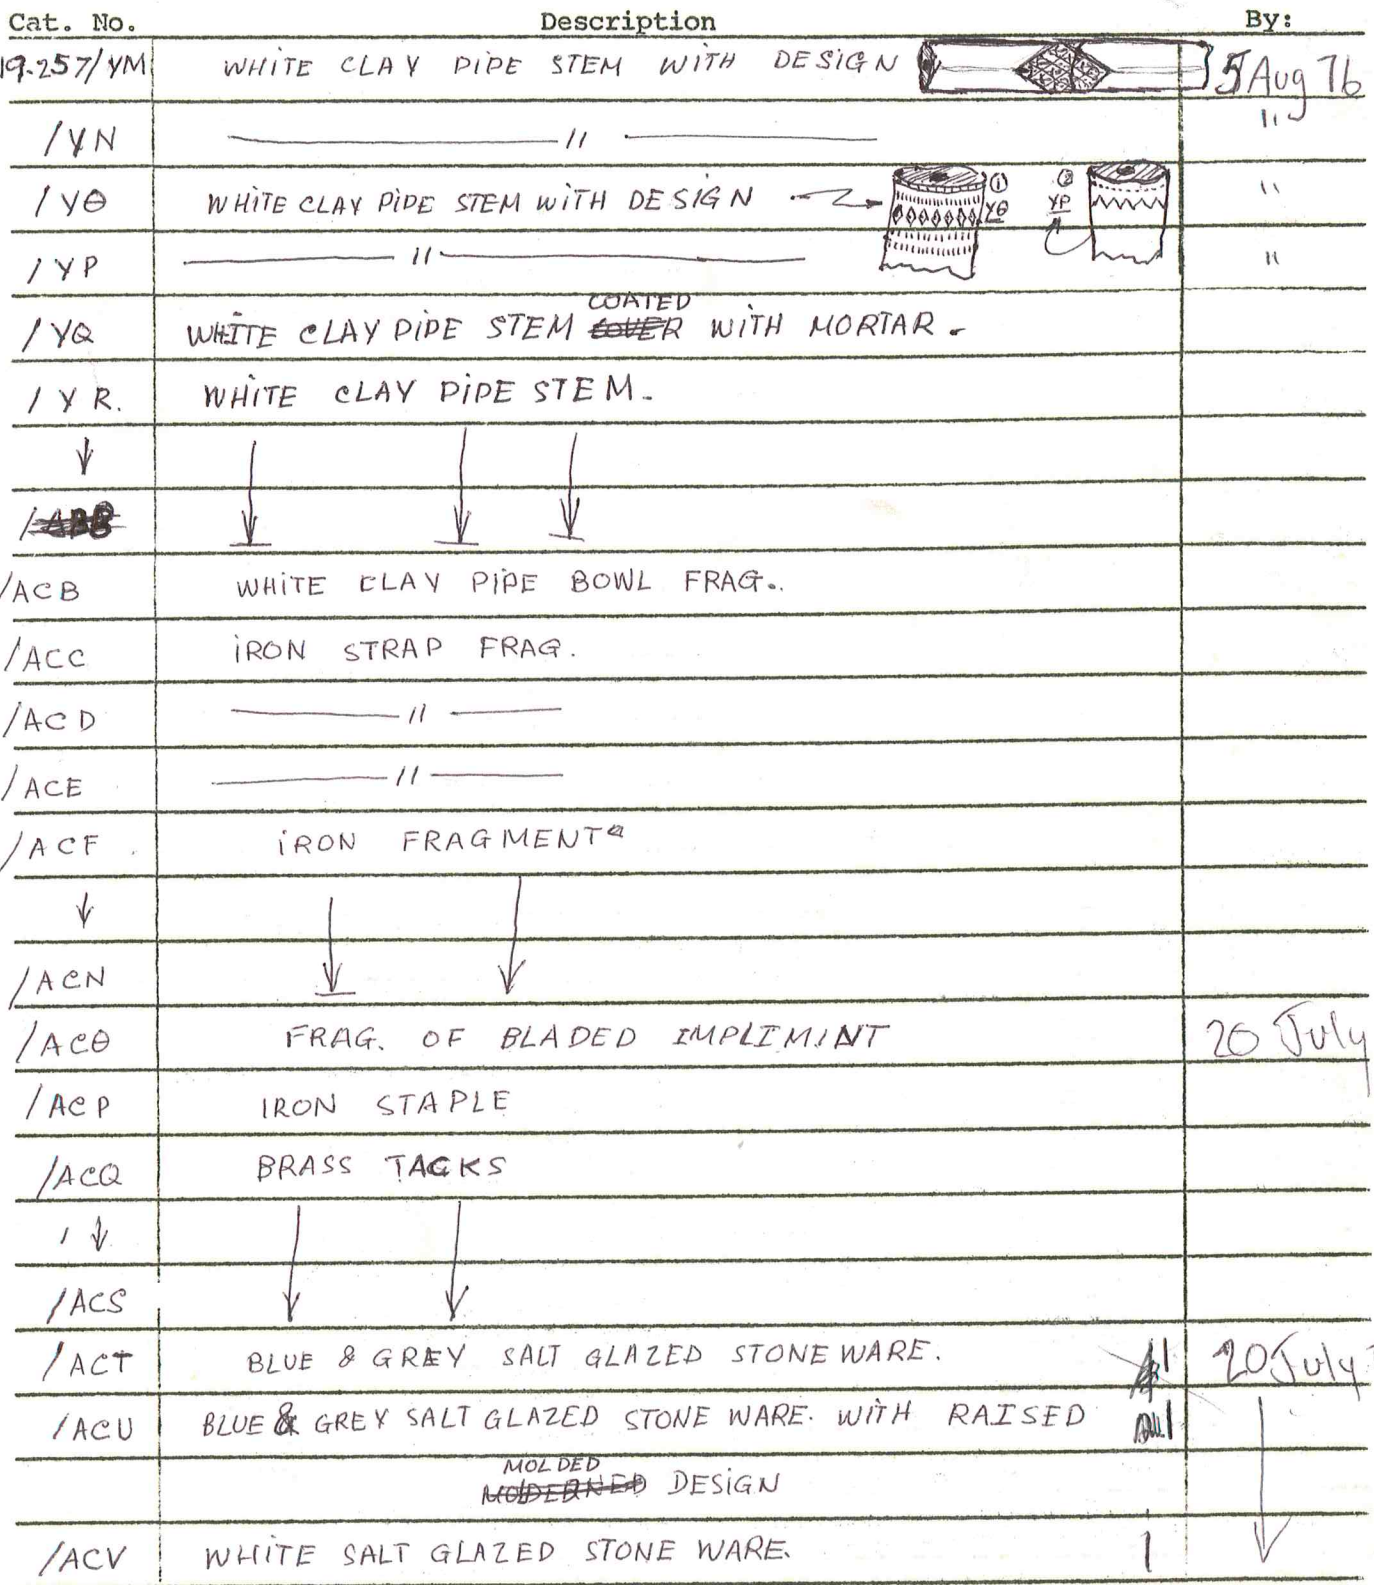 Cat. No. Description By:
19-257/YM WHITE CLAY PIPE STEM WITH DESIGN 5 Aug 76
/YN " "
/YO WHITE CLAY PIPE STEM WITH DESIGN ① YO ② YP "
/YP " "
COATED
/YQ WHITE CLAY PIPE STEM COVER WITH MORTAR.
/YR. WHITE CLAY PIPE STEM.
/ABB
/ACB WHITE CLAY PIPE BOWL FRAG..
/ACC IRON STRAP FRAG.
/ACD "
/ACE "
/ACF IRON FRAGMENT
/ACN
/ACO FRAG. OF BLADED IMPLIMINT 20 July
/ACP IRON STAPLE
/ACQ BRASS TACKS
/ACS
/ACT BLUE & GREY SALT GLAZED STONEWARE. 1 20 July
/ACU BLUE & GREY SALT GLAZED STONE WARE. WITH RAISED 1
MOLDED
MOLDERNED DESIGN
/ACV WHITE SALT GLAZED STONE WARE. 1